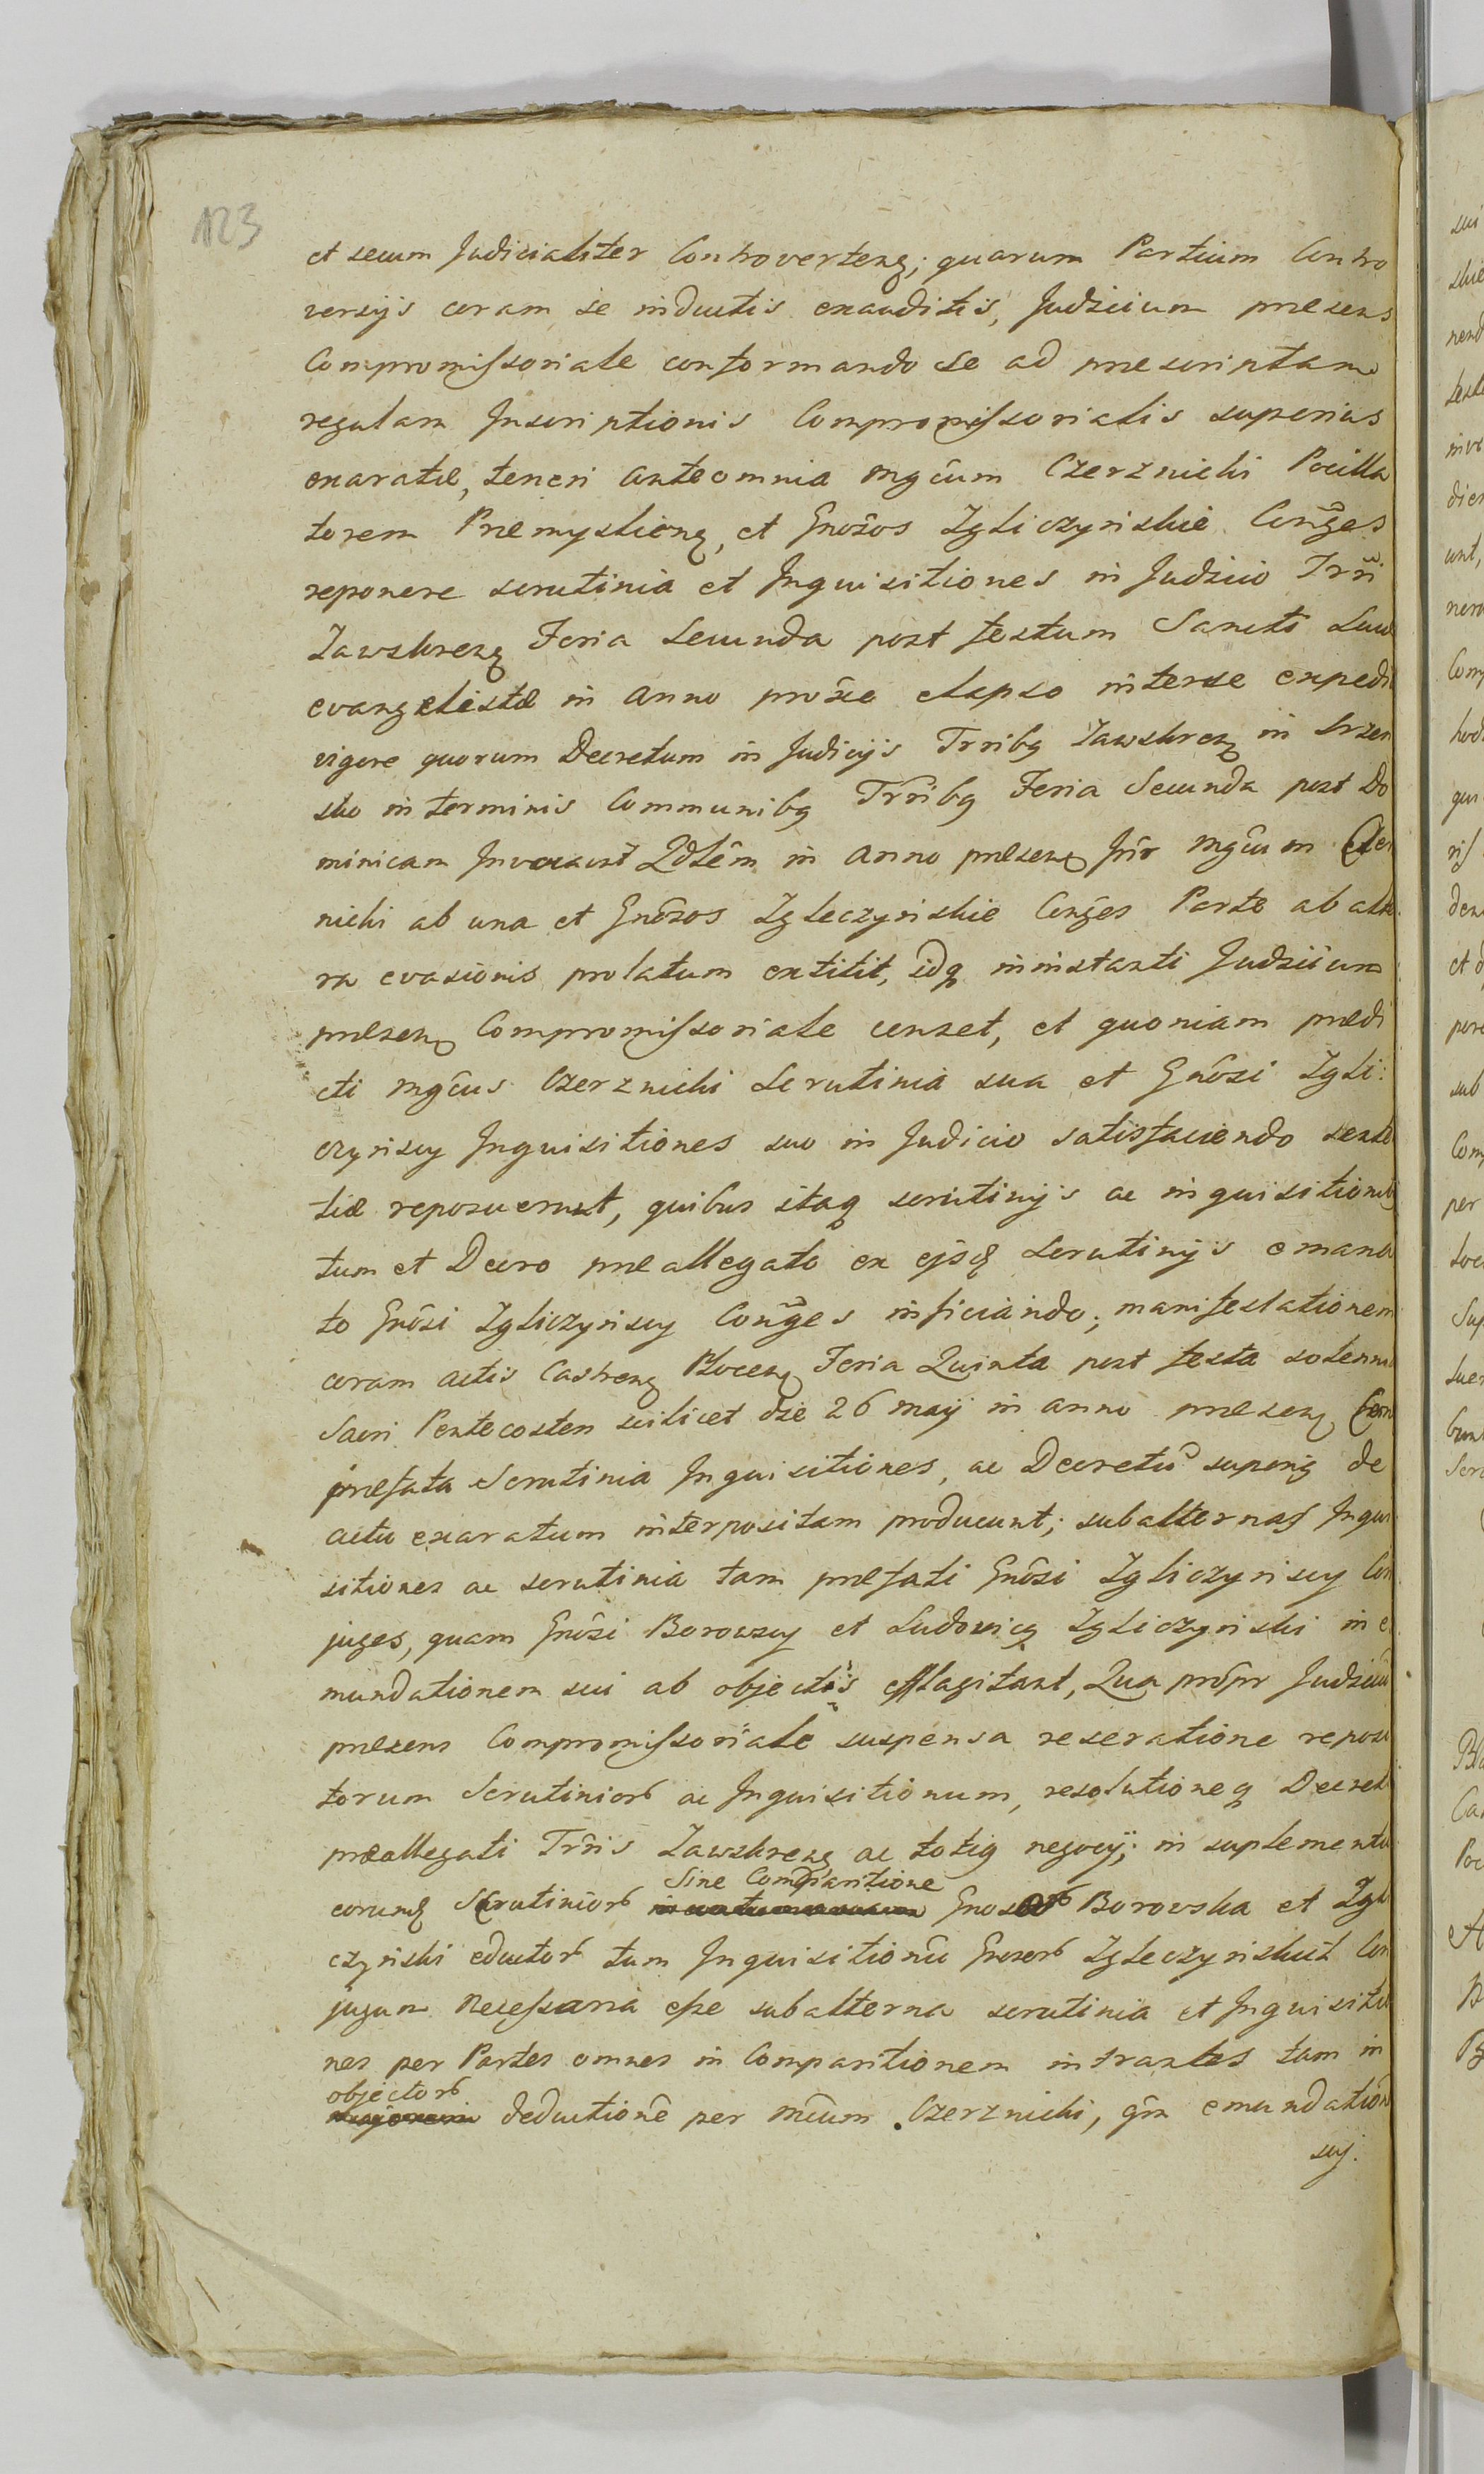 123
et secum Judicialiter Controverten; quarum Partium Contro
versijs coram se inductis exauditis, Judicium præsens
Compromissoriale conformando se ad præscriptam
regulam Inscriptionis Compromissorialis superius
exaratæ, teneri anteomnia Mgcum Czerznicki Pocilla
torem Præmyslien, et Gnosos Zgliczynskie Conges
reponere scrutinia et Inquisitiones in Judicio Trri
Zawskren Feria Secunda post festum Sancti Luca
evangelistæ in Anno proxe elapso interse expedi
vigore quorum Decretum in Judicijs Trribq Zawskren in Srzen
sko in terminis Communibq Trribq Feria Secunda post Do
minicam Invocavit Qdlem in anno præsen Intr Mgcum Czer
nicki ab una et Gnosos Zgleczynskie Conges Parte ab alte
ra evasionis prolatum extitit, idq in instanti Judicium
præsen Compromissoriale censet, et quoniam prædi
cti Mgcus Czerznicki Scrutinia sua et Gnosi Zgli:
czynscy Inquisitiones suo in Judicio satisfaciendo senten
tiæ reposuerunt, quibus itaq scrutinijs ac inquisitionib
tum et Decro præallegato ex ejsd Scrutinijs emana
to Gnosi Zgliczynscy Conges inficiando, manifestationem
coram actis Castren Plocen Feria Quinta post festa solenni
Sacri Pentecosten scilicet die 26 maij in anno præsen
præfata Scrutinia Inquisitiones, ac Decretu superiq de
actu exaratum interpositam producunt; subalternas Inqui
sitiones ac scrutinia tam præfati Gnosi Zgliczynscy Con
juges, quam Gnosi Borowscy et Ludovicq Zgliczynski in e
mundationem sui ab objectis efflagitant, Qua propr Judiciu
præsens Compromissoriale suspensa reseratione reposi
torum Scrutinior ac Inquisitionum, resolutioneq Decreti
præallegati Trris Zawskren ac totiq negocij; in suplementu
Sine Comparitione
eorund Scrutinior Gnosor Borovska et Zgli
czynski eductor tum Inquisitionu Gnosor Zgleczynskich Con
jugum Necessaria esse subalterna scrutinia et Inquisitio
nes per Partes omnes in Comparitionem intrantes tam in
objector
deductione per Mcum Czerznicki, qm emundation
suj.